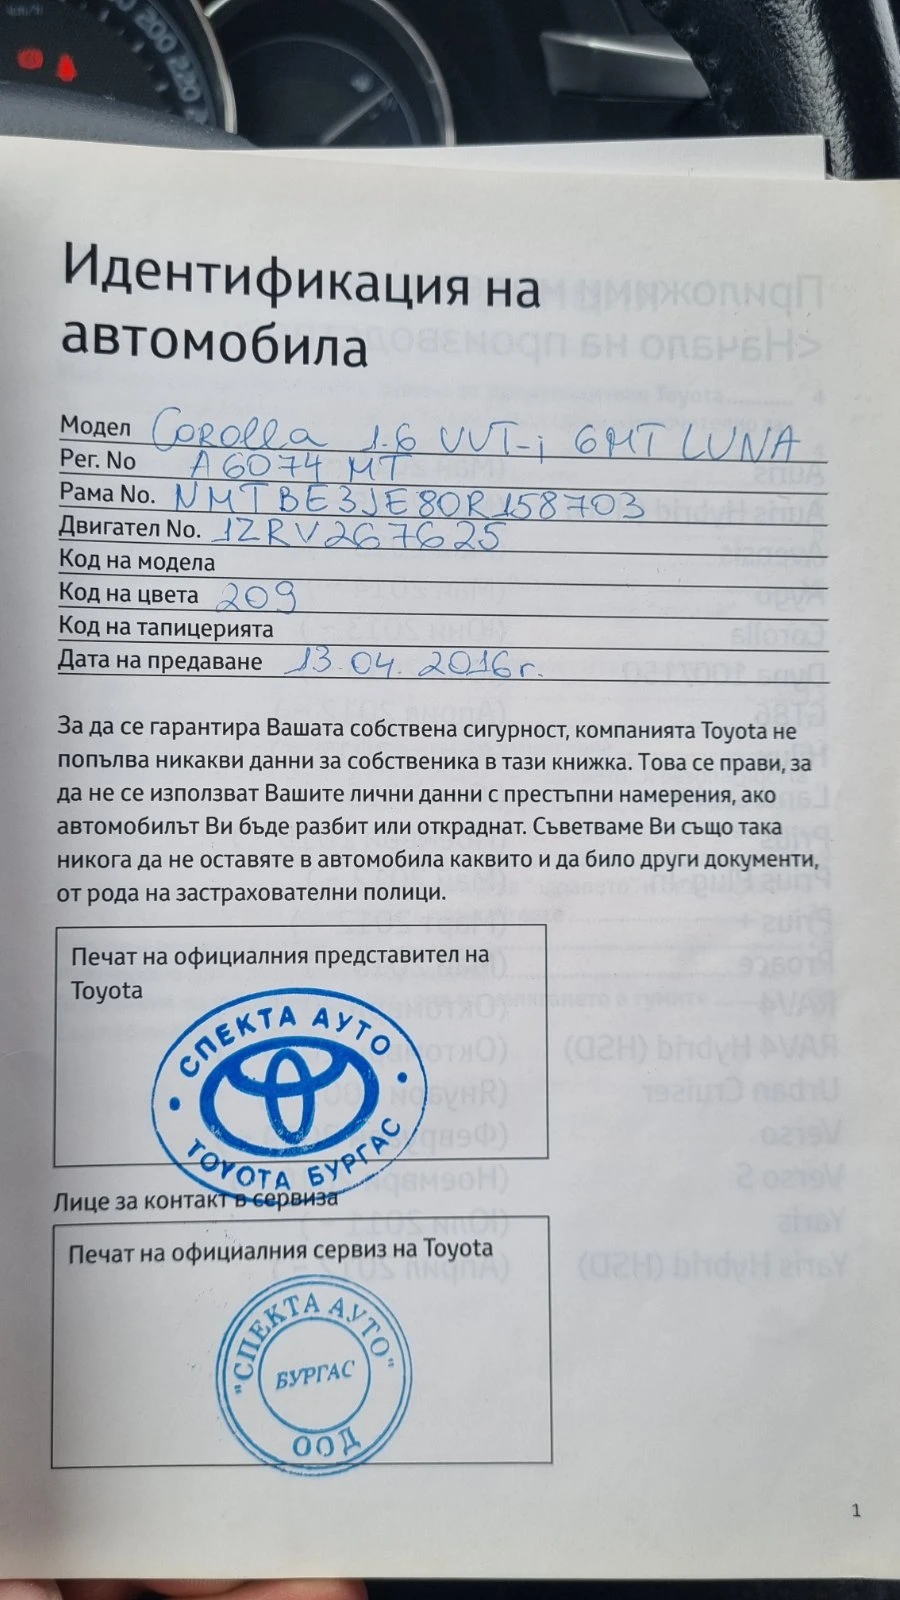 200
220
Идентификация на
автомобила
Модел Corolla 1.6 VVT-i 6MT LUNA
Рег. No A 6074 MT
Рама No. NMTBE3JE80R158703
Двигател No. 1ZRV267625
Код на модела
Код на цвета 209
Код на тапицерията
Дата на предаване 13.04.2016г.
За да се гарантира Вашата собствена сигурност, компанията Toyota не
попълва никакви данни за собственика в тази книжка. Това се прави, за
да не се използват Вашите лични данни с престъпни намерения, ако
автомобилът Ви бъде разбит или откраднат. Съветваме Ви също така
никога да не оставяте в автомобила каквито и да било други документи,
от рода на застрахователни полици.
Печат на официалния представител на
Toyota
СПЕКТА АУТО
TOYOTA БУРГАС
Лице за контакт в сервиза
Печат на официалния сервиз на Toyota
"СПЕКТА АУТО"
БУРГАС
ООД
1